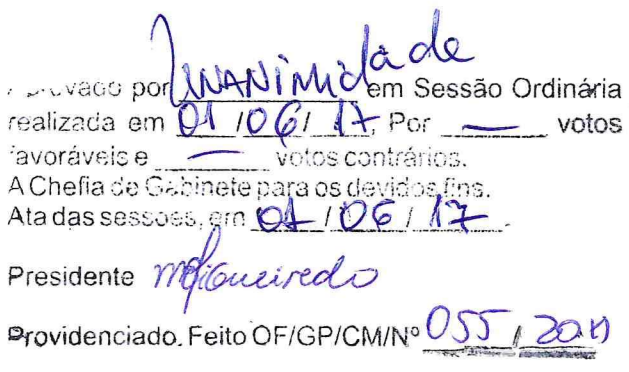 Aprovado por Unanimidade em Sessão Ordinária
realizada em 01/06/17, Por — votos
favoráveis e — votos contrários.
A Chefia de Gabinete para os devidos fins.
Ata das sessoes, em 01/06/17.
Presidente
Providenciado. Feito OF/GP/CM/Nº 055/2017